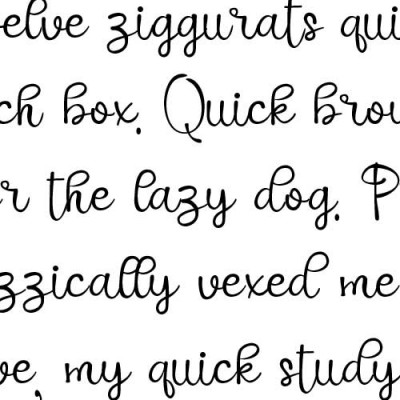 elve ziggurats qui
ch box. Quick brow
r the lazy dog. P
zzically vexed me
ve, my quick study